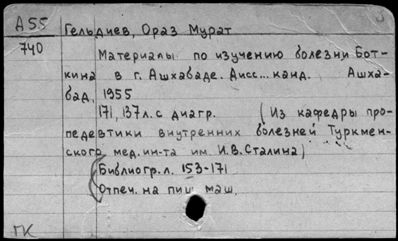 А55 Гельдиев, Ораз Мурат
740
Материалы по изучению болезни Бот-
кина в г. Ашхабаде. Дисс... канд. Ашха-
бад, 1955
171, 137 л. с диагр. (Из кафедры про-
педевтики внутренних болезней Туркмен-
ского мед. ин-та им. И.В. Сталина)
Библиогр. л. 153-171
Отпеч. на пиш. маш.
ГК